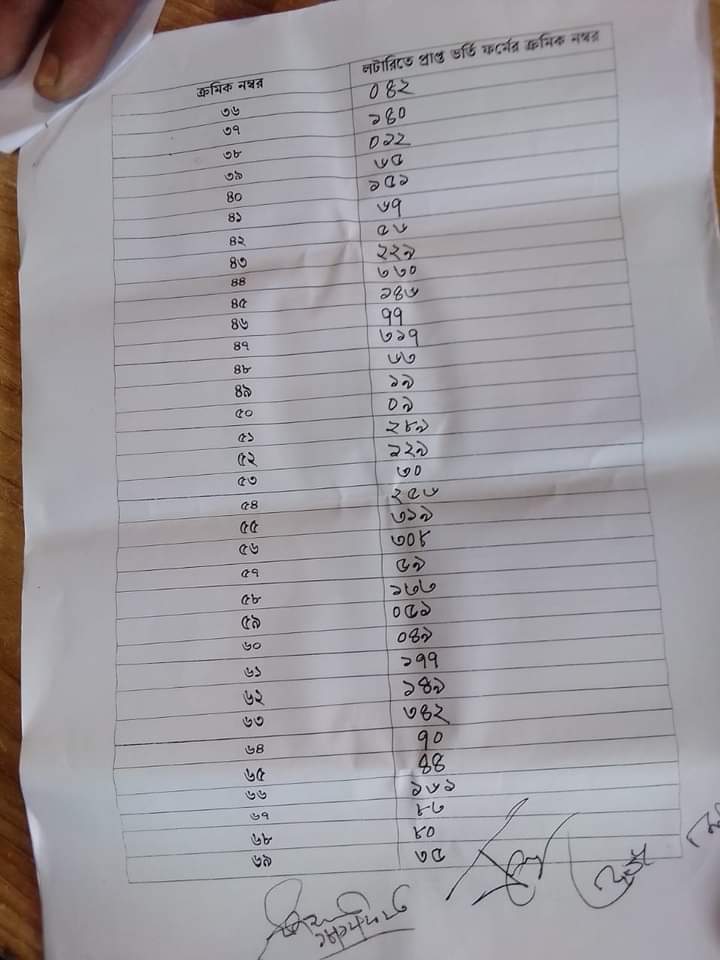 ক্রমিক নম্বর লটারিতে প্রাপ্ত ভর্তি ফর্মের ক্রমিক নম্বর
৩৬ ০৪২
৩৭ ১৪০
৩৮ ০১২
৩৯ ৬৫
৪০ ১৫১
৪১ ৬৭
৪২ ৫৬
৪৩ ২২৯
৪৪ ৩৩০
৪৫ ১৪৬
৪৬ ৭৭
৪৭ ৩১৭
৪৮ ৬৩
৪৯ ১৯
৫০ ০৯
৫১ ২৮৯
৫২ ১২৯
৫৩ ৩০
৫৪ ২৫৬
৫৫ ৩১৯
৫৬ ৩০৮
৫৭ ৫৯
৫৮ ১৩৩
৫৯ ০৫১
৬০ ০৪৯
৬১ ১৭৭
৬২ ১৪৯
৬৩ ৩৪২
৬৪ ৭০
৬৫ ৪৪
৬৬ ১৬১
৬৭ ৮৩
৬৮ ৮০
৬৯ ৩৫